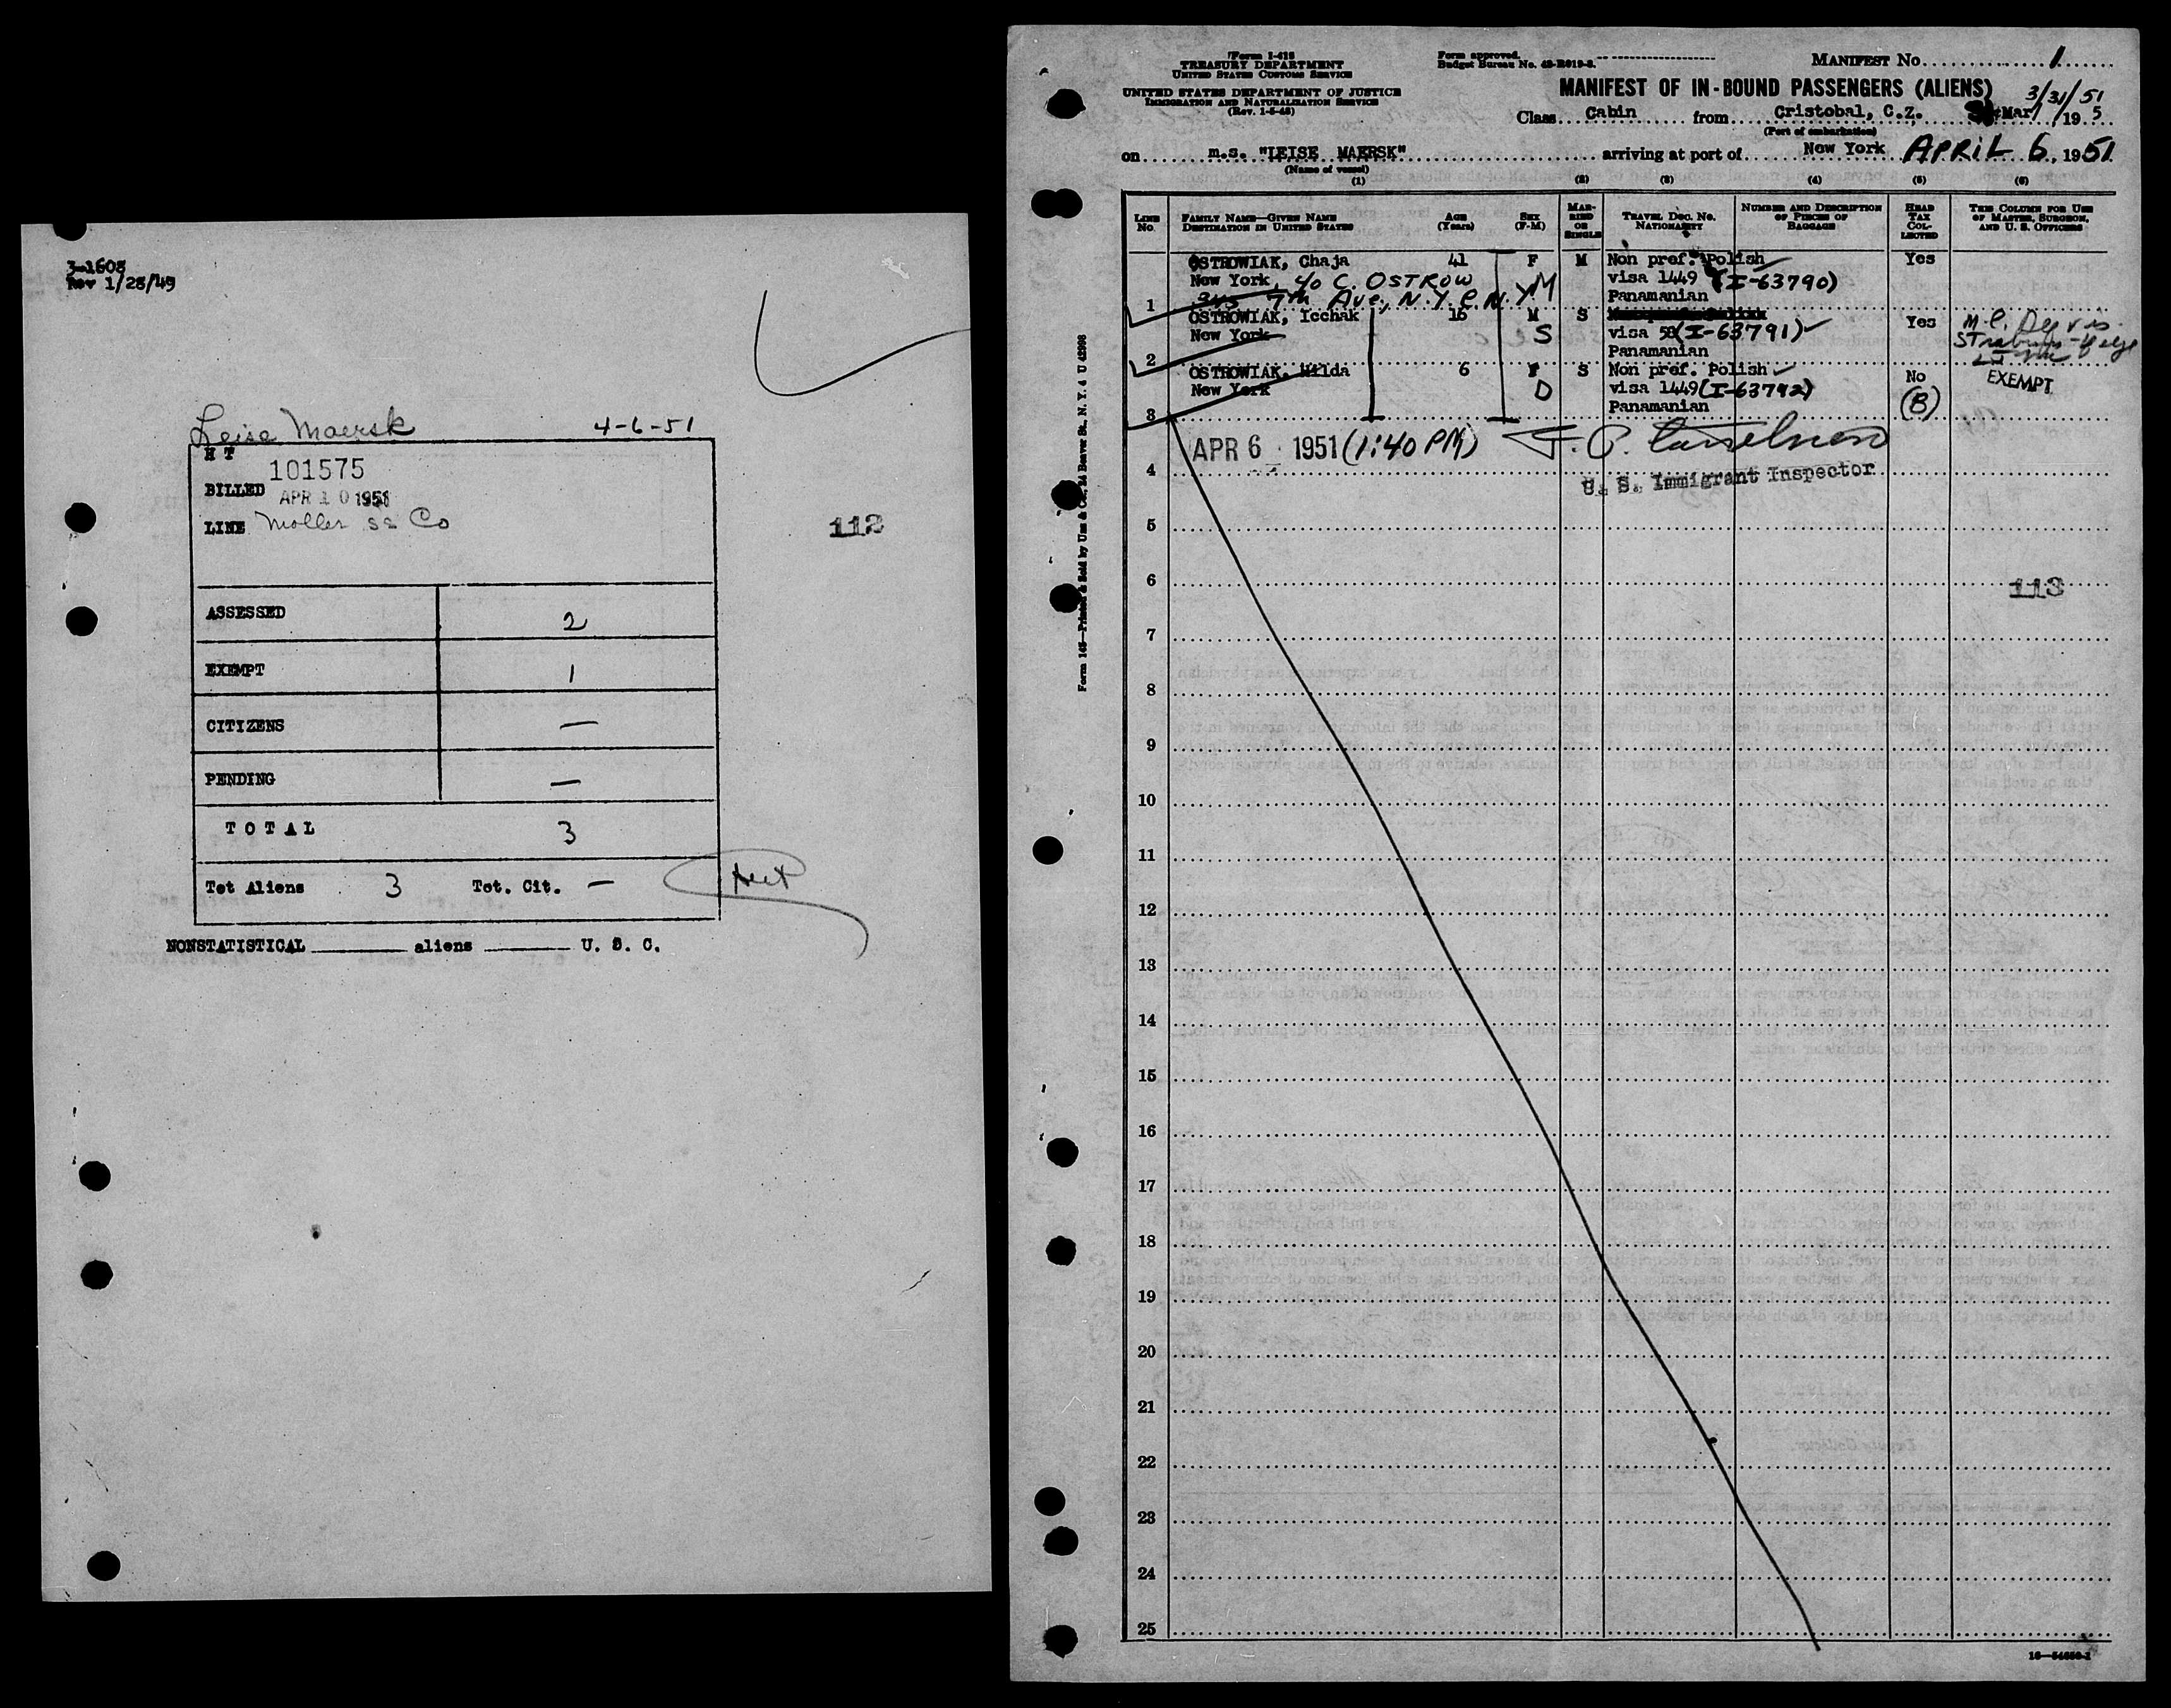 3-1608
Rev 1/28/49
Leise Maersk 4-6-51
H T 101575
BILLED APR 10 1951
LINE Moller SS Co
112
ASSESSED 2
EXEMPT 1
CITIZENS —
PENDING —
TOTAL 3
Tot Aliens 3 Tot. Cit. —
NONSTATISTICAL ______ aliens ______ U. S. C.
Form I-418
TREASURY DEPARTMENT
UNITED STATES CUSTOMS SERVICE
UNITED STATES DEPARTMENT OF JUSTICE
IMMIGRATION AND NATURALIZATION SERVICE
(Rev. 1-5-48)
Form approved.
Budget Bureau No. 43-R019-3.
MANIFEST No. 1
MANIFEST OF IN-BOUND PASSENGERS (ALIENS)
3/31/51
Class Cabin from Cristobal, C.Z. Mar 19 5
(Port of embarkation)
on m.s. "LEISE MAERSK" arriving at port of New York APRIL 6, 1951
(Name of vessel)
(1) (2) (3) (4) (5) (6)
LINE No.
FAMILY NAME—GIVEN NAME
DESTINATION IN UNITED STATES
AGE (Years)
SEX (F-M)
MARRIED OR SINGLE
TRAVEL DOC. NO. NATIONALITY
NUMBER AND DESCRIPTION OF PIECES OF BAGGAGE
HEAD TAX COLLECTED
THIS COLUMN FOR USE OF MASTER, SURGEON, AND U. S. OFFICERS
OSTROWIAK, Chaja 41 F M Non pref. Polish Yes
New York, c/o C. OSTROW M visa 1449 (I-63790)
1 7th Ave, N.Y.C. N.Y. Panamanian
OSTROWIAK, Icchak 16 M S
New York S visa 58 (I-63791) Yes
2 Panamanian
OSTROWIAK, Hilda 6 F S Non pref. Polish No EXEMPT
New York D visa 1449 (I-63792) (B)
3 Panamanian
APR 6 1951 (1:40 PM)
U. S. Immigrant Inspector
4
5
6
113
7
8
9
10
11
12
13
14
15
16
17
18
19
20
21
22
23
24
25
16—54650-1